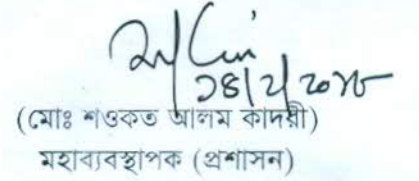 ১৪/২/২০১৮
(মোঃ শওকত আলম কাদরী)
মহাব্যবস্থাপক (প্রশাসন)